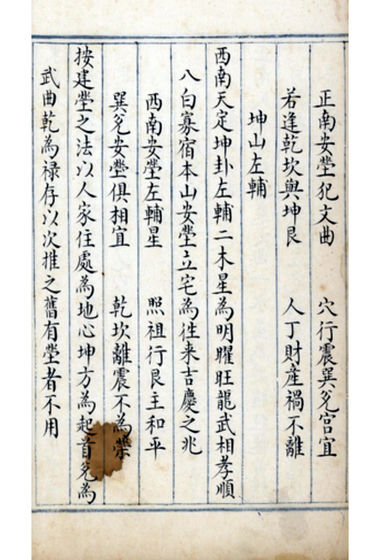 正南安塋犯文曲　穴行震巽兌宮宜
若逢乾坎與坤艮　人丁財產禍不離
坤山左輔
西南天定坤卦左輔二木星為明曜旺龍武相孝順
八白寡宿本山安塋立宅為往来吉慶之兆
西南安塋左輔星　照祖行艮主和平
巽兌安塋俱相宜　乾坎離震不為榮
按建塋之法以人家住處為地心坤方為起首兌為
武曲乾為祿存以次推之舊有塋者不用